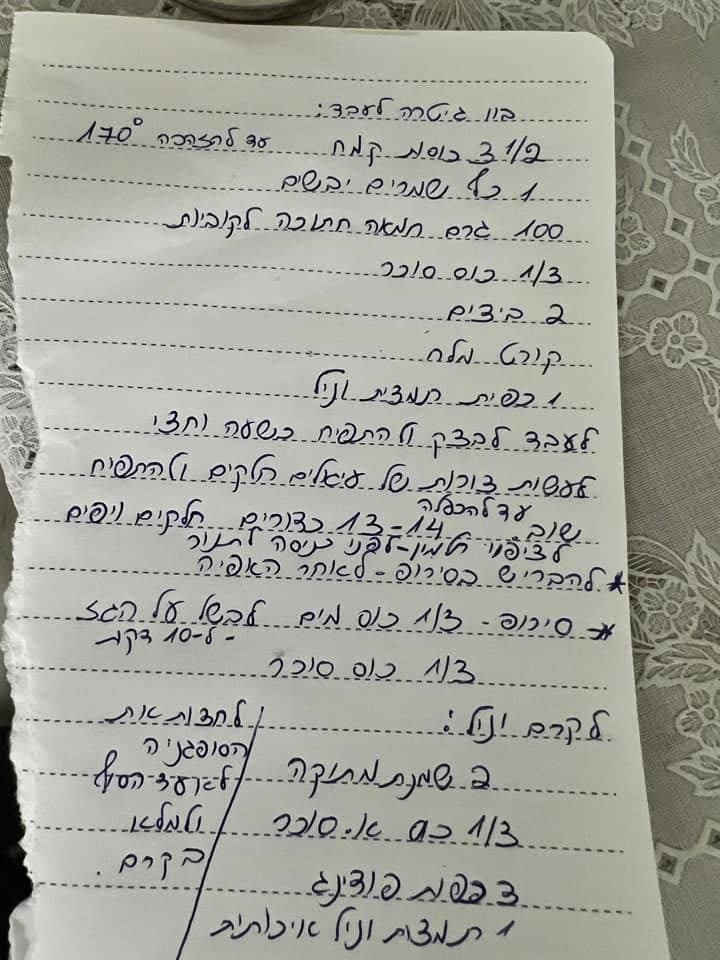 בוו גיטרה לעבד:
3 1/2 כוסות קמח עד להזהבה 170°
1 כף שמרים יבשים
100 גרם חמאה חתוכה לקוביות
1/3 כוס סוכר
2 ביצים
קורט מלח
1 כפית תמצית וניל
לעבד לבצק ולהתפיח כשעה וחצי
לעשות צורות של עיגולים חלקים ולהתפיח
עד להכפלה
שוב. 13-14 כדורים חלקים ויפים
לציפוי חלמון-לפני כניסה לתנור
* להבריש בסירופ - לאחר האפיה
* סירופ - 1/3 כוס מים לבשל על הגז
- ל-10 דקות
1/3 כוס סוכר
לקרם וניל:
2 שמנת מתוקה
1/3 כוס א. סוכר
3 כפות פודינג
1 תמצות וניל איכותית
לחצות את
הסופגניה
לא עד הסוף
ולמלא
בקרם.